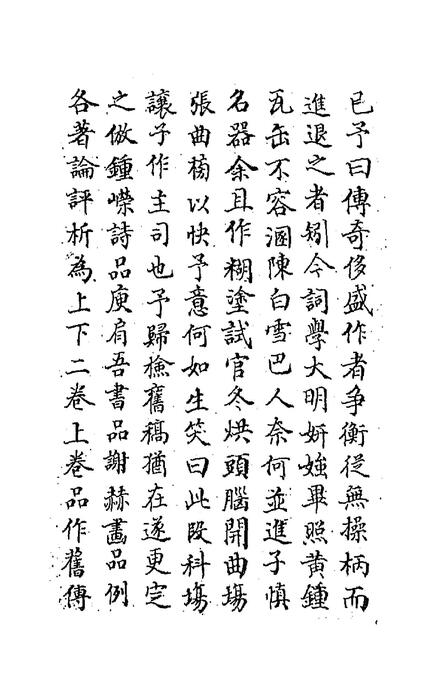 已予曰傳奇侈盛作者争衡從無操柄而
進退之者矧今詞學大明妍媸畢照黃鍾
瓦缶不容溷陳白雪巴人奈何並進子慎
名器余且作糊塗試官冬烘頭腦開曲塲
張曲榜以快予意何如生笑曰此段科塲
讓子作主司也予歸檢舊稿猶在遂更定
之倣鍾嶸詩品庾肩吾書品謝赫畫品例
各著論評析為上下二卷上卷品作舊傳